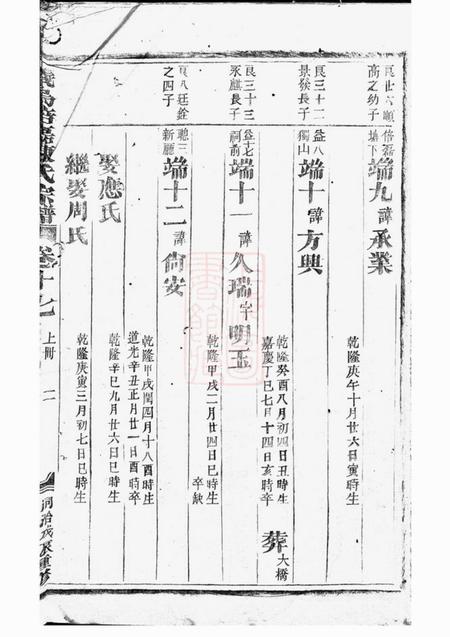 良廿六順
高之幼子
倍磊
塘下
端九諱承業
乾隆庚午十月廿六日寅時生
良三十二
景發長子
益八
獨山
端十諱方興
乾隆癸酉八月初四日丑時生
嘉慶丁巳七月十四日亥時卒
葬大橋
良三十三
永麒長子
益十七
祠前
端十一諱久瑞字明玉
乾隆甲戌二月廿四日巳時生
卒缺
良八廷銓
之四子
聰三
新廳
端十二諱尙安
乾隆甲戌閏四月十八酉時生
道光辛丑正月廿一日酉時卒
娶應氏
乾隆辛巳九月廿六日巳時生
繼娶周氏
乾隆庚寅三月初七日巳時生
義烏倍磊陳氏宗譜
卷十七
上冊
二
同治戊辰重修